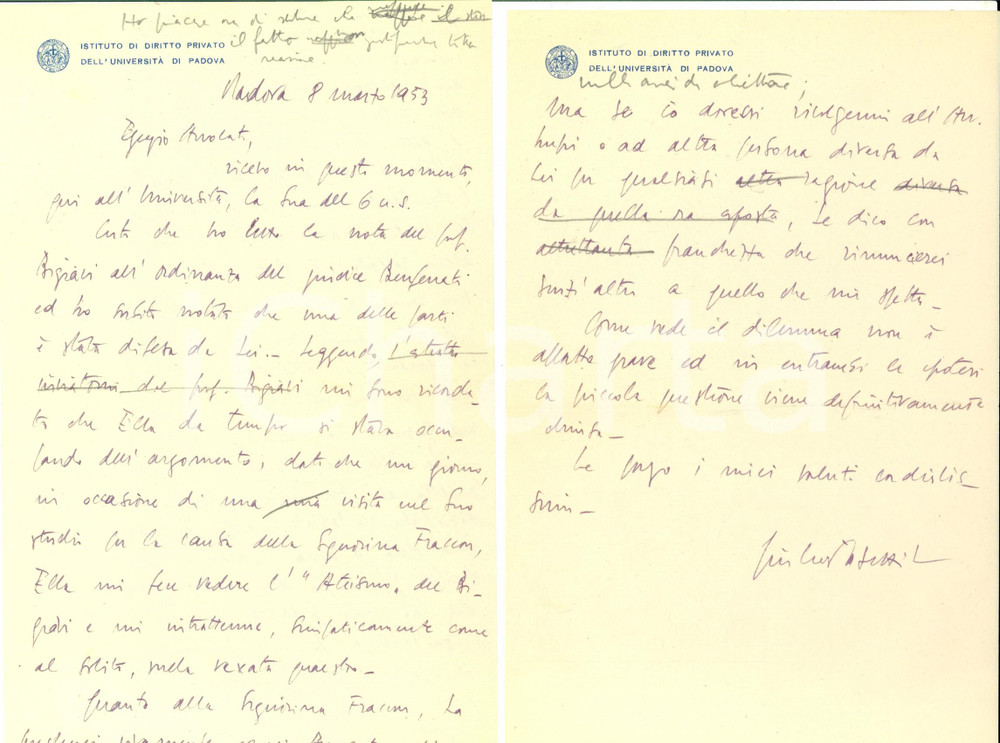 Ho piacere ora di vedere che
il fatto
ISTITUTO DI DIRITTO PRIVATO
DELL'UNIVERSITÀ DI PADOVA
Padova 8 marzo 1953
Egregio Avvocato,
ricevo in questo momento,
qui all'Università, la Sua del 6 u.s.
Certo che ho letto la nota del prof.
Bigiavi all'ordinanza del giudice Bengenati
ed ho subito notato che una delle parti
è stata difesa da Lei. Leggendo, l'
del prof. Bigiavi mi sono ricorda-
to che Ella da tempo si stava occu-
pando dell'argomento, dato che un giorno,
in occasione di una una visita nel Suo
studio per la causa della Signorina Fraccon,
Ella mi fece vedere l'"Ateismo" del Bi-
giavi e mi intrattenne, simpaticamente come
al solito, sulla vexata quaestio.
Quanto alla Signorina Fraccon, La
ISTITUTO DI DIRITTO PRIVATO
DELL'UNIVERSITÀ DI PADOVA
nulla avrei da obiettare;
Ma se io dovessi rivolgermi all'Avv.
o ad altra persona diversa da
Lei per qualsiasi altra ragione diversa
da quella ora esposta, Le dico con
altrettanta franchezza che rinuncierei
senz'altro a quello che mi spetta.
Come vede il dilemma non è
affatto grave ed in entrambe le ipotesi
la piccola questione viene definitivamente
chiusa.
Le porgo i miei saluti cordialis-
simi.